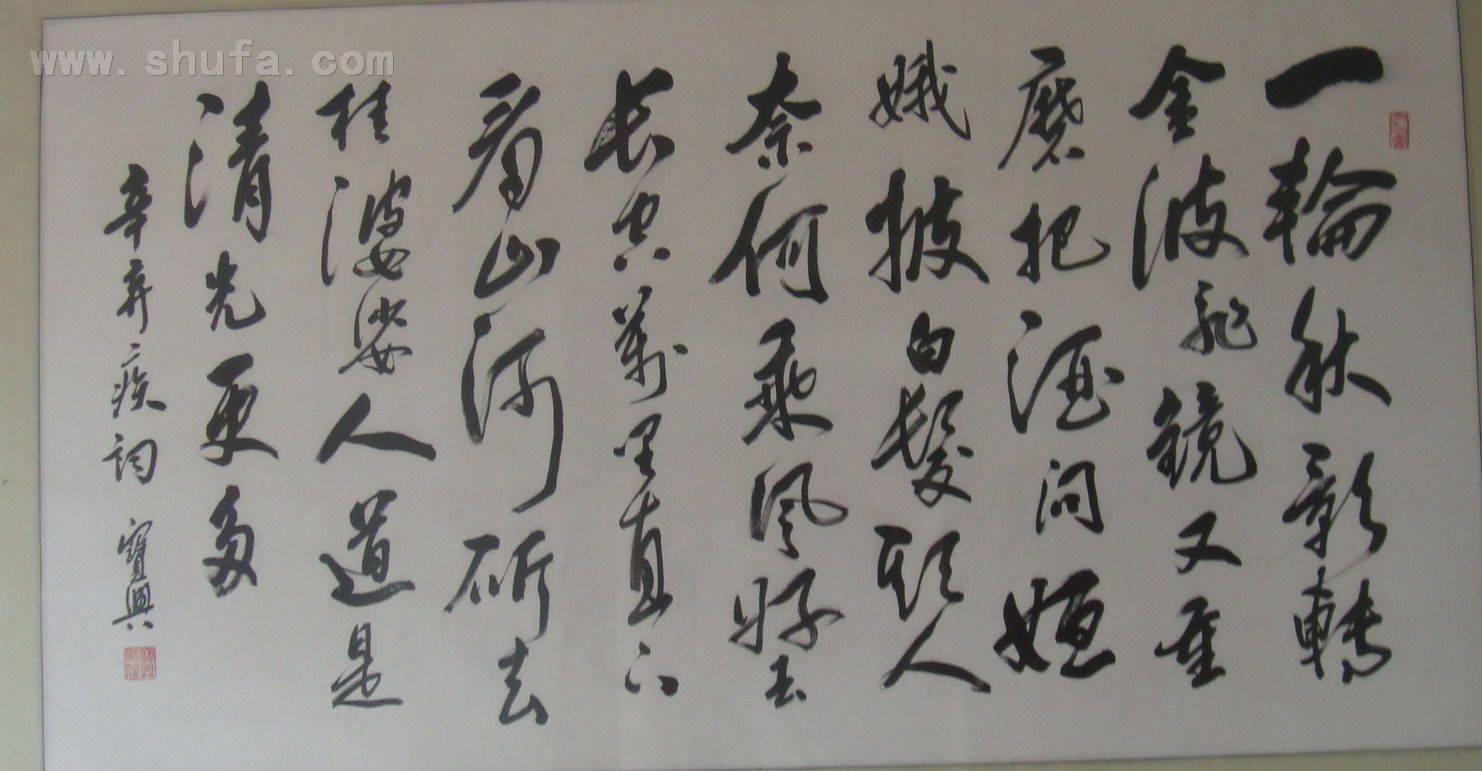 www.shufa.com
一輪秋影轉
金波飛鏡又重
磨把酒問姮
娥披白髮欺人
奈何乘風好去
長空萬里直下
看山河斫去
桂婆娑人道是
清光更多
辛弃疾詞 寶興